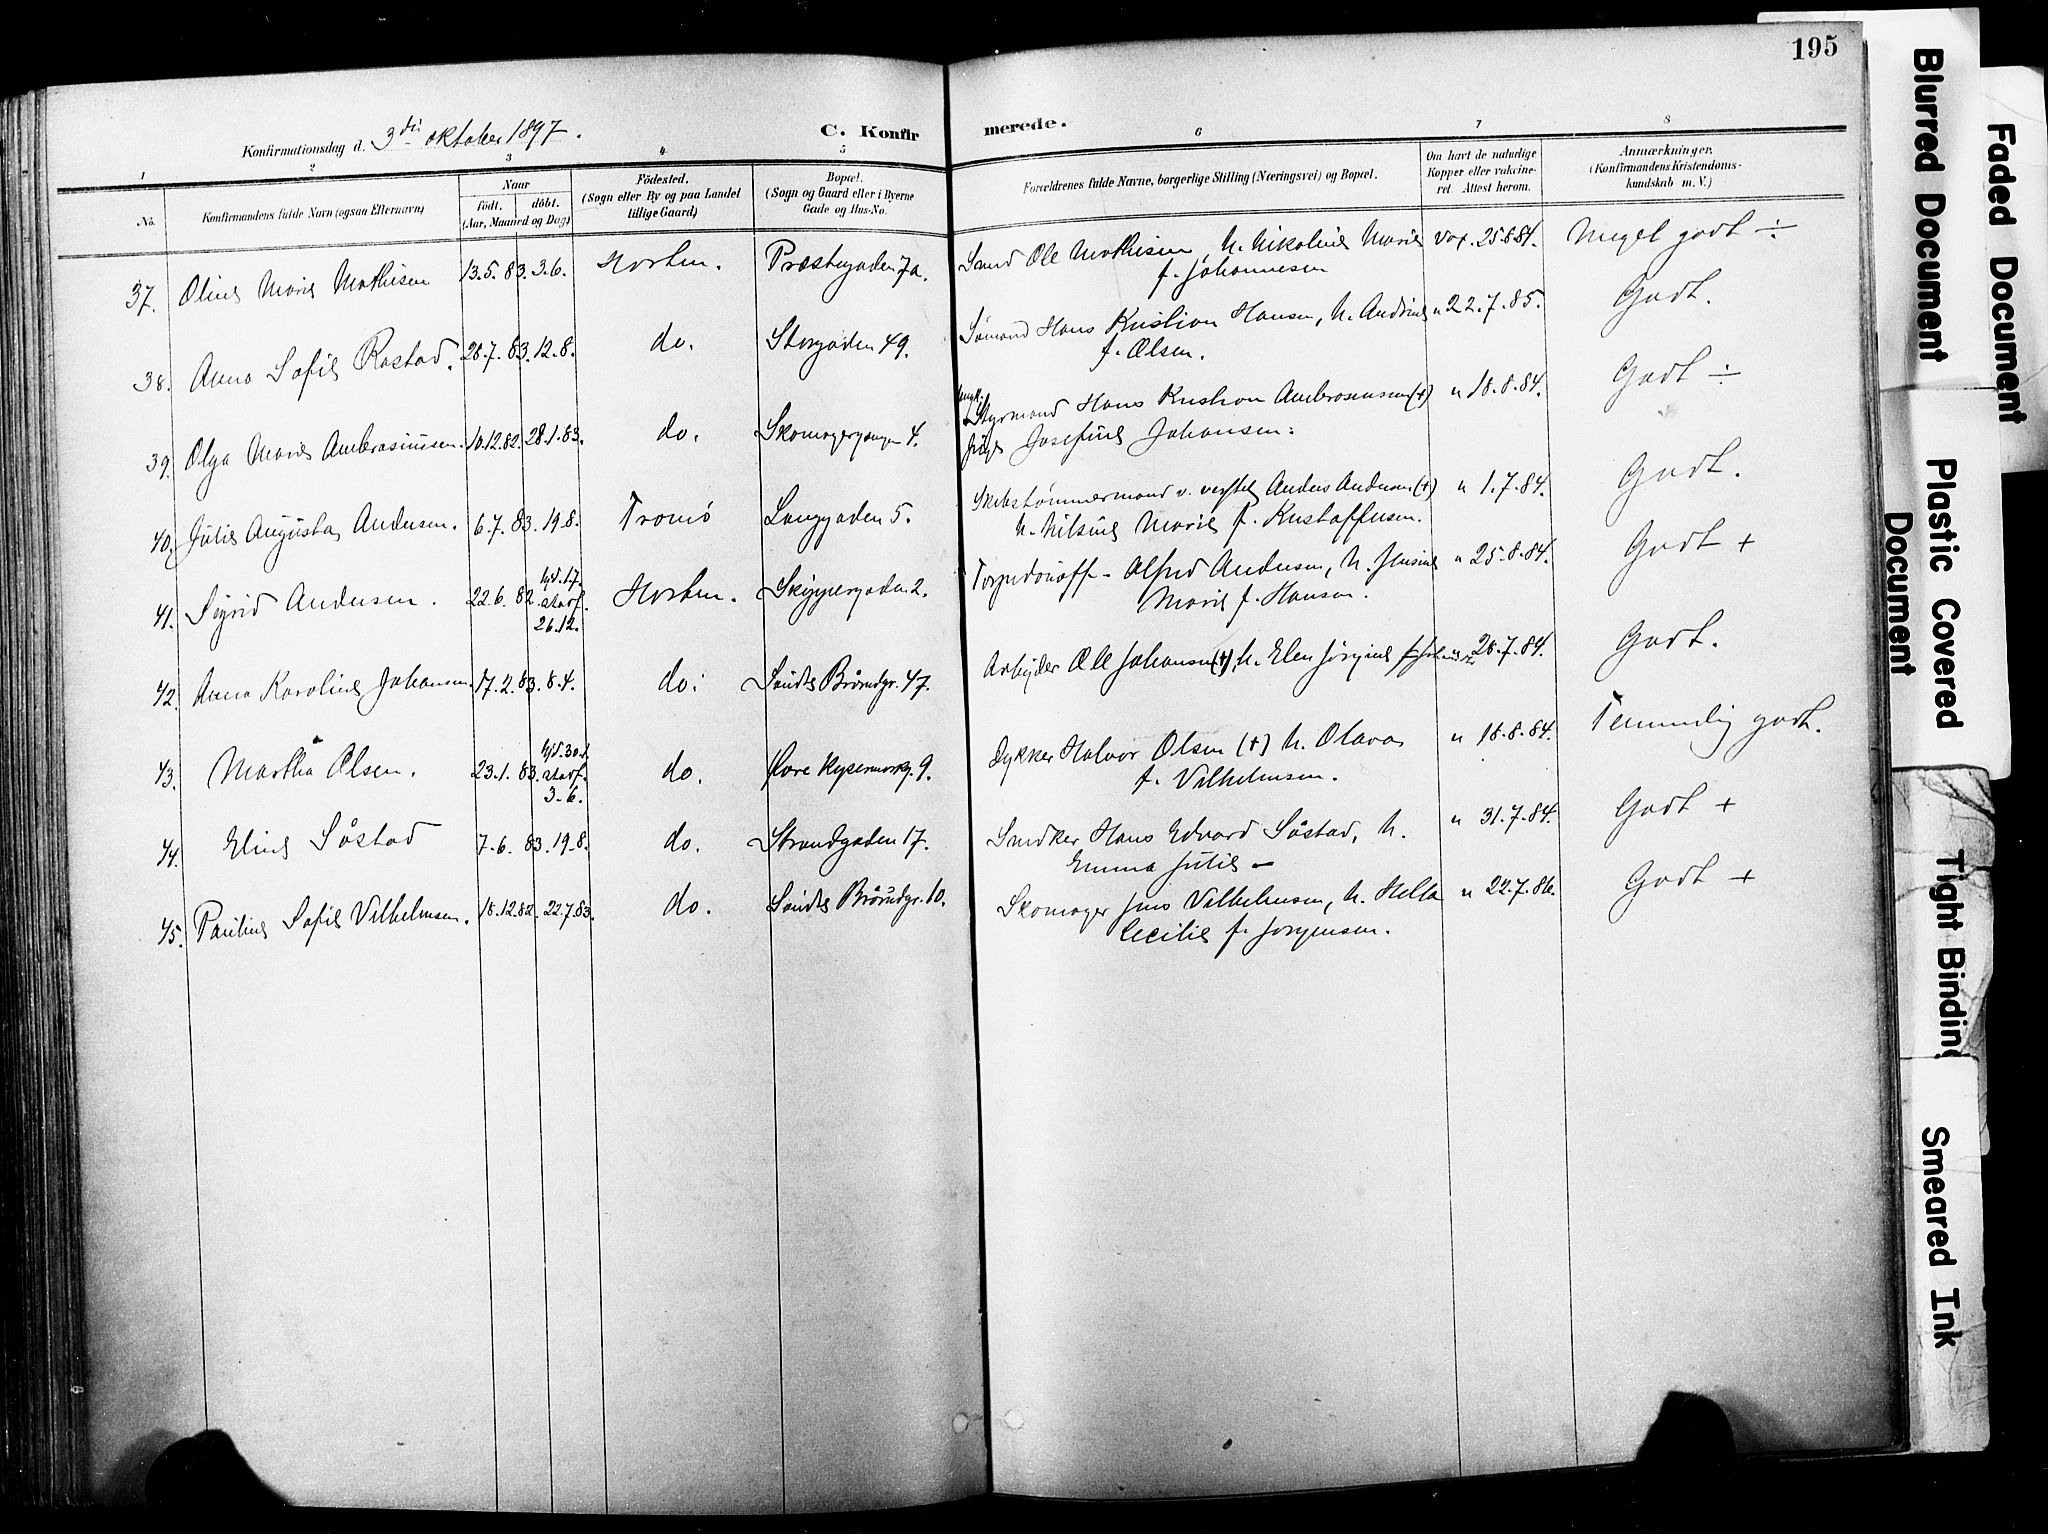 195
Konfirmationsdag d. 3die oktober 1897.
C. Konfirmerede.
1 2 3 4 5 6 7 8
No.
Konfirmandens fulde Navn (ogsaa Efternavn)
Naar
født. døbt.
(Aar, Maaned og Dag)
Fødested.
(Sogn eller By og paa Landet
tillige Gaard)
Bopæl.
(Sogn og Gaard eller i Byerne
Gade og Hus-No.
Forældrenes fulde Navne, borgerlige Stilling (Næringsvei) og Bopæl.
Om havt de naturlige
Kopper eller vakcine-
ret. Attest herom.
Anmærkninger.
(Konfirmandens Kristendoms-
kundskab m. V.)
37. Oline Marie Mathisen 13.5.83. 3.6. Horten. Præstegaden 7a. Smed Ole Mathisen, h. Nikoline Marie Vax. 25.8.84. Meget godt ÷
f. Johannesen
38. Anna Sofie Rastad. 28.7.83. 12.8. do. Storgaden 49. Sømand Hans Kristian Hansen, h. Andrine " 22.7.85. Godt.
f. Olsen.
39. Olga Marie Ambrosiussen. 10.12.82. 28.1.83. do. Skomagergangen 4. Styrmand Hans Kristian Ambrosiussen (+) " 18.8.84. Godt ÷
Josefine Johansen.
40. Julie Augusta Andersen. 6.7.83. 19.8. Tromø Langgaden 5. Skibstømmermand v. verftet Anders Andersen (+) " 1.7.84. Godt.
h. Nilsine Marie f. Kristoffersen.
41. Sigrid Andersen. 22.6.82 hjd. 17. Horten. Skippergaden 2. Torpedounoff. Alfred Andersen, h. Jensine " 25.8.84. Godt +
stadf.
26.12.
Marie f. Hansen.
42. Anna Karoline Johansen. 17.2.83. 8.4. do. Søndre Brårudgt. 47. Arbejder Ole Johansen (+), h. Elen Jørgine " 28.7.84. Godt.
43. Martha Olsen. 23.1.83. hjd. 30. do. 9. Dykker Halvor Olsen (+) h. Olava " 18.8.84. Temmelig godt.
stadf.
3-6.
f. Vilhelmsen.
44. Eline Såstad 7.6.83. 19.8. do. Strandgaden 17. Snedker Hans Edvard Såstad, h. " 31.7.84. Godt +
Emma Julie —
45. Pauline Sofie Vilhelmsen. 18.12.82. 22.7.83. do. Søndre Brårudgt. 10. Skomager Jens Vilhelmsen, h. Hella " 22.7.86. Godt +
Cecilie f. Jørgensen.
Blurred Document
Faded Document
Plastic Covered
Document
Tight Binding
Smeared Ink